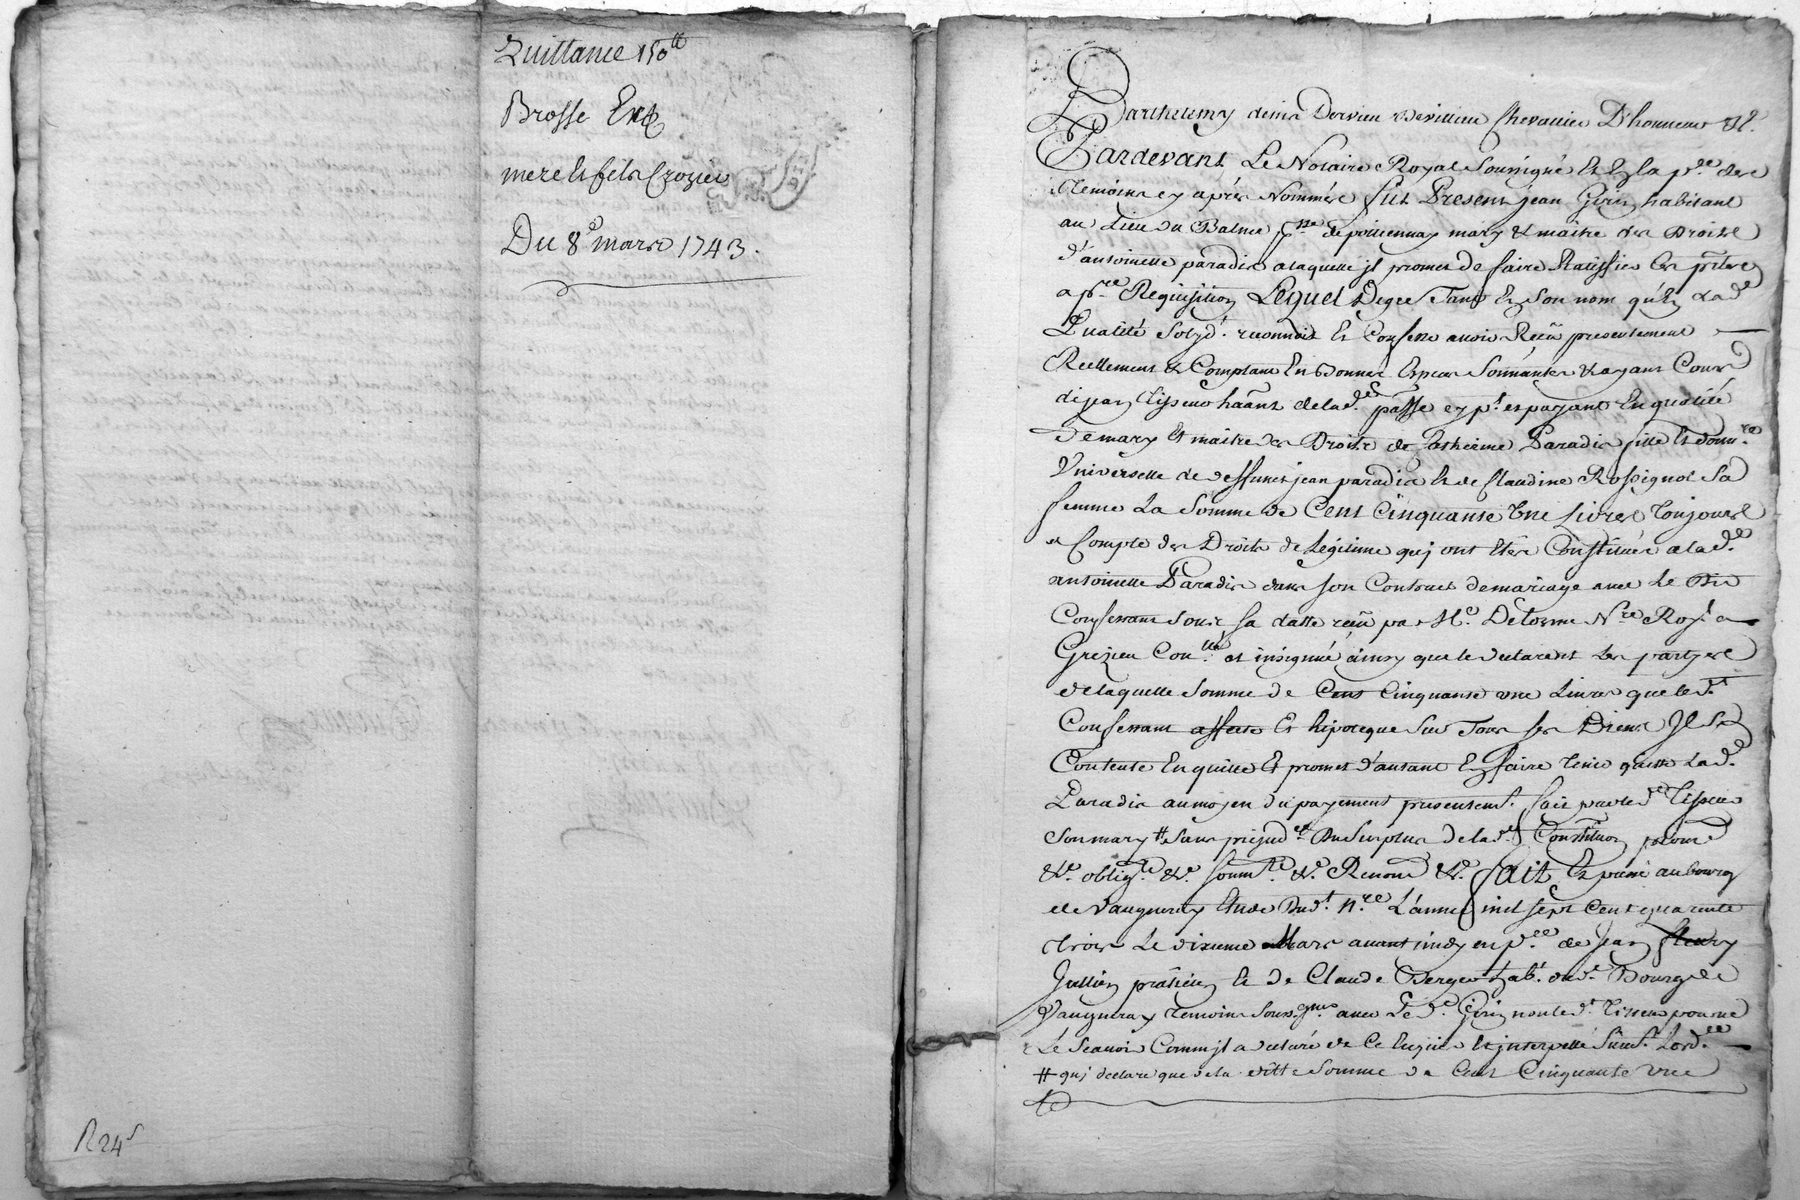 Quittance 150tt
Brosse
mere et fils Crozier
Du 8e mars 1743.
R 24s
Barthelemy denis Dervieu Devillieu Chevallier D'honneur &c.
Pardevant Le Notaire Royal Soussigné Et En la pce des
temoins cy aprés Nommés fut Present jean Girin habitant
au Lieu du Balme psse de pollionnay mary & maitre des Droits
d'antoinette paradis a laquelle jl promet de faire Ratiffier les pntes
a pre Requisition Lequel De gré Tant En Son nom qu'En lade
Qualité Solyd. reconnoit Et Confesse avoir Reçu presentement
Reellement & Comptant En Bonnes Especes Sonnantes & ayant Cours
de jean Tisseur hãant de lade. pãsse cy pt. et payant En qualité
de mary Et maitre des Droits de Catherine Paradis fille Et donre
Universelle de deffunts jean paradis Et de Claudine Rossignol Sa
femme La Somme de Cent Cinquante Une Livres Toujours
a Compte des Droits de Légitime quj ont Etés Constitués a lade.
antoinette Paradis dans son Contract de mariage avec Le Dit
Confessant Sous sa datte reçu par Me. Delorme Nre Royl a
Grezieu Conllé et insignué ainsy que le declarent Les partyes
de laquelle Somme de Cent Cinquante une Livres que ledt.
Confessant affecte Et hipoteque Sur Tous ses Biens Jl Se
Contente En quitte Et promet d'autant En faire Tenir quitte lade.
Paradis au moyen du payement presentemt. fait par led. Tisseur
Son mary # Sans prejude Du Surplus de lade. Constituon prome
&c. oblign &c. soumn. &c. Renond &c. fait Et passé au bourg
de Vaugneray Etude Dudt. nre L'année mil sept Cent quarante
trois Le dixieme Mars avant midy en pce de Jean fleury
Jullien praticien Et de Claude Berger habt. dudt. Bourg de
Vaugneray temoins Soussgnés avec Led. Girin non led. Tisseur pour ne
Le Scavoir Comme jl a declaré de Ce Enquis Et jnterpellé Suivt. Lordce
# quj declare que de la ditte Somme de Cent Cinquante une